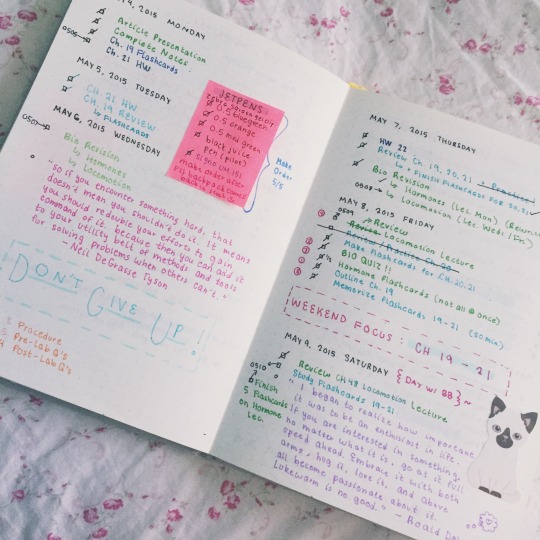 4, 2015 MONDAY
Article Presentation
Complete Notes
Ch. 19 Flashcards
Ch. 21 HW
0505
MAY 5, 2015 TUESDAY
CH. 21 HW
CH. 19 REVIEW
↳ FLASHCARDS
MAY 6, 2015 WEDNESDAY
0507
Bio Revision
↳ Hormones
↳ Locomotion
"So if you encounter something hard, that
doesn't mean you shouldn't do it. It means
you should redouble your efforts to gain
command of it, because then you can add it
to your utility belt of methods and tools
for solving problems when others can't."
- Neil DeGrasse Tyson
DON'T GIVE UP!
Procedure
Pre-Lab Q's
Post-Lab Q's
JETPENS:
0.5 bluegreen
0.5 orange
0.5 mint green
black juice
pen (pilot)
make order after
Make
Order
5/5
MAY 7, 2015 THURSDAY
HW 22
Review Ch. 19, 20, 21
↳ Finish Flashcards for 20, 21
Bio Revision
↳ Hormones (Lec. Mon)
↳ Locomotion (Lec. Wed./Fri.)
0508
MAY 8, 2015 FRIDAY
0509
↳ Review
Review Locomotion Lecture
Review / Practice Ch. 20
Make Flashcards for CH. 20, 21
BIO QUIZ!!
Hormone Flashcards (not all @ once)
Outline Ch. 19
Memorize Flashcards 19-21 (50 min)
WEEKEND FOCUS: CH 19 - 21
MAY 9, 2015 SATURDAY {DAY W/ BB}
0510
Review CH 48 Locomotion Lecture
Study Flashcards 19-21
Finish
5 Flashcards
on Hormone
Lec.
"I began to realize how important
it was to be an enthusiast in life.
If you are interested in something,
no matter what it is, go at it full
speed ahead. Embrace it with both
arms, hug it, love it, and above
all become passionate about it.
Lukewarm is no good." - Roald